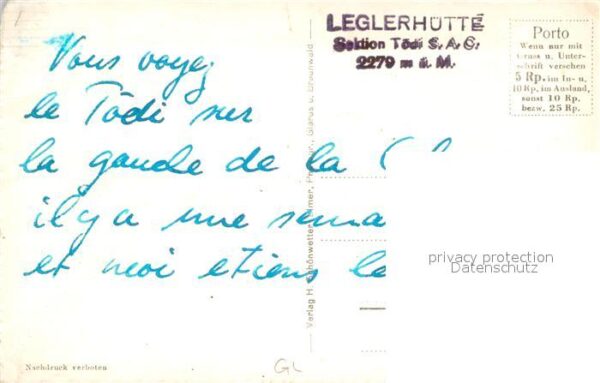 LEGLERHÜTTE
Sektion Tödi S. A. C.
2279 m ü. M.
Porto
Wenn nur mit
Gruss u. Unter-
schrift versehen
5 Rp. im In- u.
10 Rp. im Ausland,
sonst 10 Rp.
bezw. 25 Rp.
Vous voyez
le Tödi sur
la gauche de la
il y a une sema
et moi étions le
Verlag H. Schönwetter Glarus u. Braunwald
privacy protection
Datenschutz
Nachdruck verboten
GL